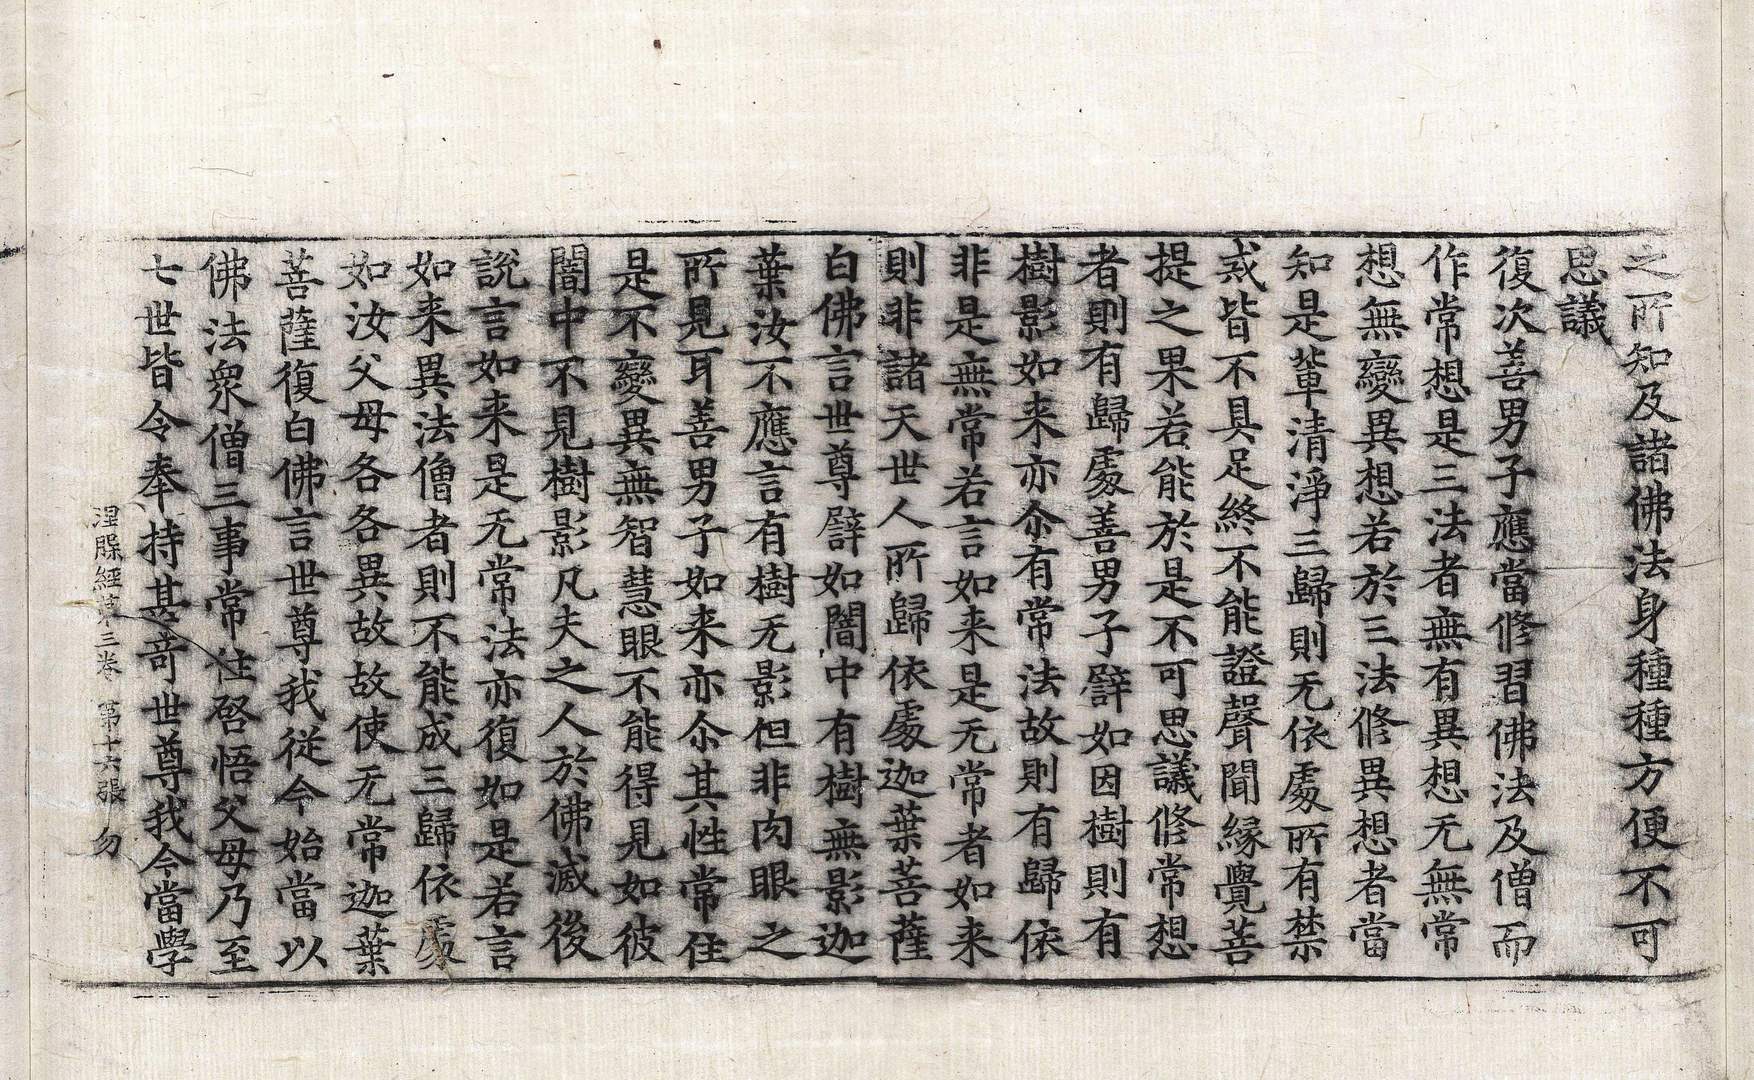 之所知及諸佛法身種種方便不可
思議
復次善男子應當修習佛法及僧而
作常想是三法者無有異想无無常
想無變異想若於三法修異想者當
知是輩清淨三歸則无依處所有禁
戒皆不具足終不能證聲聞緣覺菩
提之果若能於是不可思議修常想
者則有歸處善男子譬如因樹則有
樹影如来亦尒有常法故則有歸依
非是無常若言如来是无常者如来
則非諸天世人所歸依處迦葉菩薩
白佛言世尊譬如闇中有樹無影迦
葉汝不應言有樹无影但非肉眼之
所見耳善男子如来亦尒其性常住
是不變異無智慧眼不能得見如彼
闇中不見樹影凡夫之人於佛滅後
說言如来是无常法亦復如是若言
如来異法僧者則不能成三歸依處
如汝父母各各異故故使无常迦葉
菩薩復白佛言世尊我從今始當以
佛法衆僧三事常住啓悟父母乃至
七世皆令奉持甚奇世尊我今當學
涅槃經苐三卷 第十六張 勿